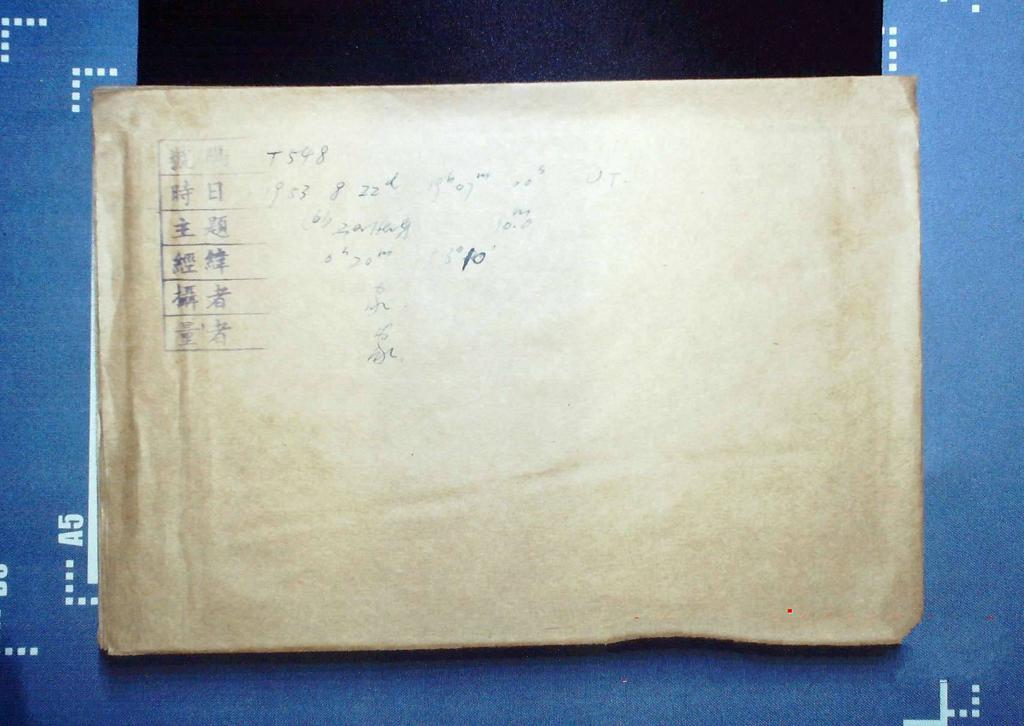 號碼 T548
時日 1953 8 22d 19h 07m 00s UT.
主題 10.0m
經緯 0h 20m 10'
攝者
量者
A5